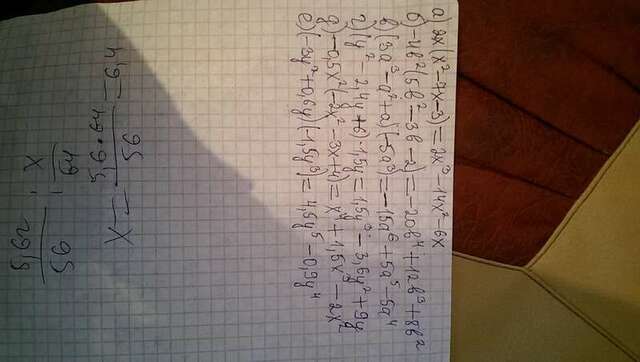 а) 2x(x²-7x-3)=2x³-14x²-6x
б) -4b²(5b²-3b-2)=-20b⁴+12b³+8b²
в) (3a³-a²+a)(-5a³)=-15a⁶+5a⁵-5a⁴
г) (y²-2,4y+6)·1,5y=1,5y³-3,6y²+9y
д) -0,5x²(-2x²-3x+4)=x⁴+1,5x³-2x²
е) (-3y²+0,6y)(-1,5y³)=4,5y⁵-0,9y⁴
X = 5,6·64 / 56 = 6,4
56 64